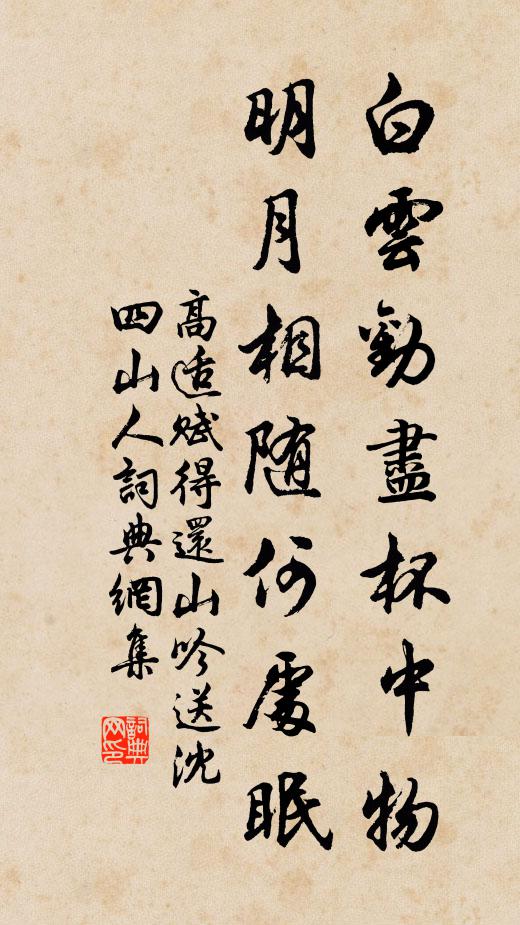 白雲勸盡杯中物
明月相随何處眠
高适赋得還山吟送沈
四山人詞典網集
詞典网印